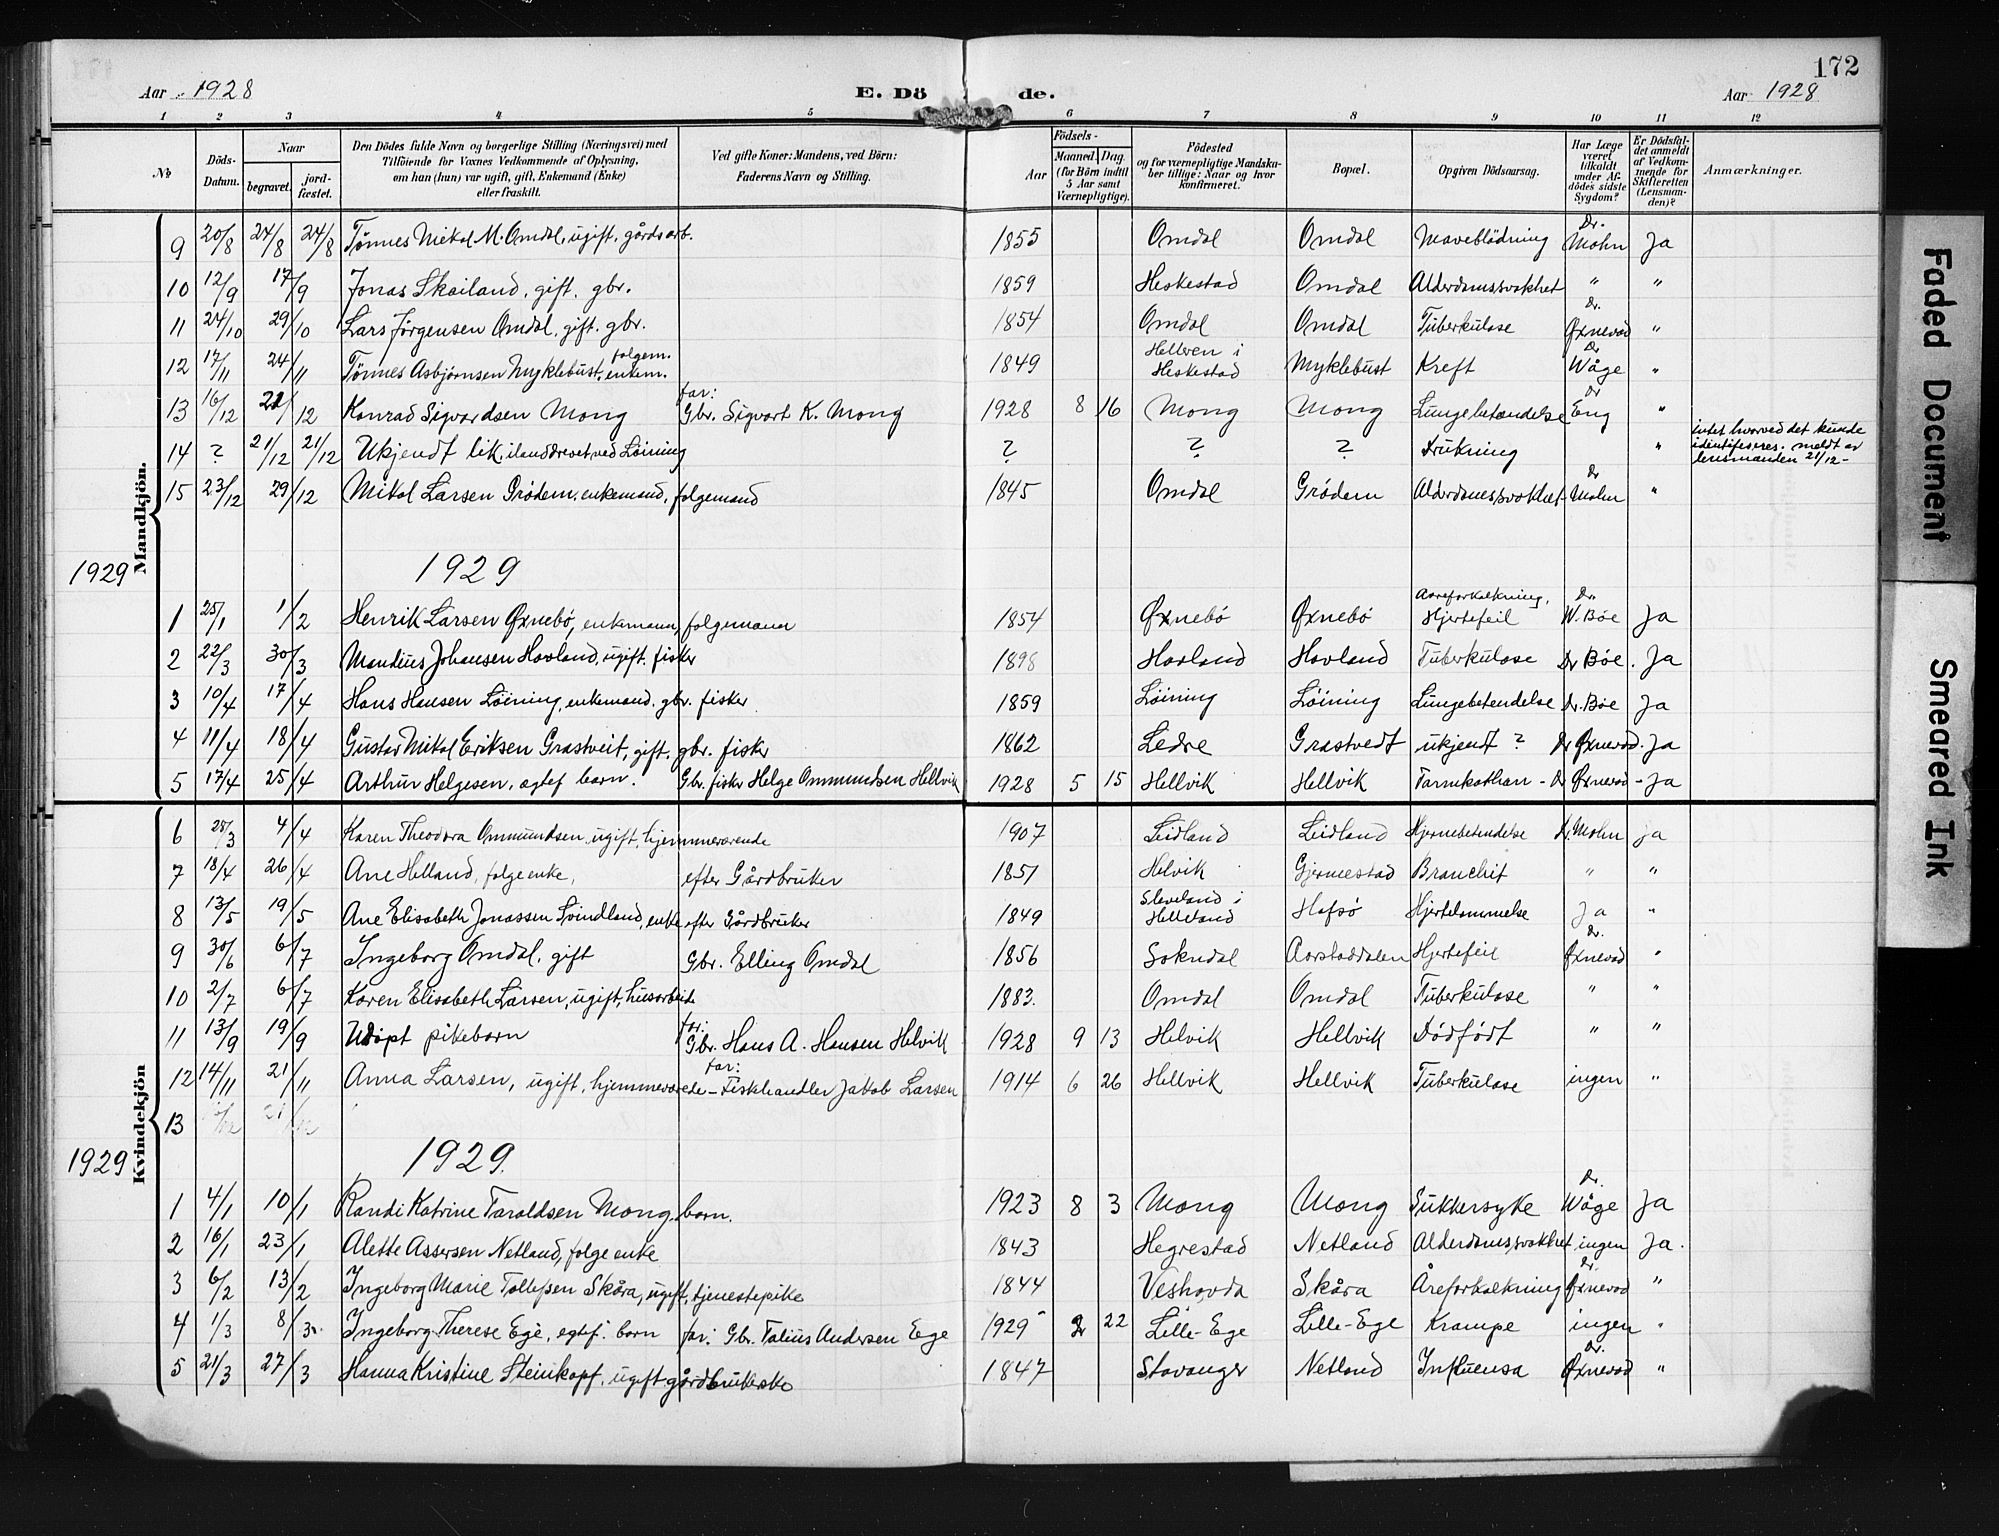 172
Aar 1928 E. Dö de. Aar 1928
1 2 3 4 5 6 7 8 9 10 11 12
No
Döds-Datum.
Naar
begravet.
jord-fæstet.
Den Dödes fulde Navn og borgerlige Stilling (Næringsvei) med
Tilföiende for Voxnes Vedkommende af Oplysning,
om han (hun) var ugift, gift, Enkemand (Enke)
eller fraskilt.
Ved gifte Koner: Mandens, ved Börn:
Faderens Navn og Stilling.
Födsels-
Aar
Maaned. Dag.
(for Börn indtil
5 Aar samt
Værnepligtige).
Födested
og for værnepligtige Mandska-
ber tillige: Naar og hvor
konfirmeret.
Bopæl.
Opgiven Dödsaarsag.
Har Læge
været
tilkaldt
under Af-
dödes sidste
Sygdom?
Er Dödsfal-
det anmeldt
af Vedkom-
mende for
Skifteretten
(Lensman-
den)?
Anmærkninger.
Mandkjön.
9 20/8 24/8 24/8 Tönnes Mikal M. Omdal, ugift, gårdsarb. 1855 Omdal Omdal Maveblödning Dr. Mohn Ja
10 12/9 17/9 Jonas Skailand, gift. gbr. 1859 Heskestad Omdal Alderdomssvakhet " "
11 24/10 29/10 Lars Jörgensen Omdal, gift. gbr. 1854 Omdal Omdal Tuberkulose Dr. Øxnevad "
12 17/11 24/11 Tönnes Asbjörnsen Myklebust, folgem. enkem. 1849 Hellren i Heskestad Myklebust Kreft Dr Wåge "
13 16/12 21/12 Konrad Sigvardsen Mong far: Gbr. Sigvart K. Mong 1928 8 16 Mong Mong Lungebetændelse Dr Eng "
14 ? 21/12 21/12 Ukjendt lik, ilanddrevet ved Löining ? ? ? Drukning " intet hvorved det kunde
identifiseres. meldt av
lensmanden 21/12 -
15 23/12 29/12 Mikal Larsen Grödem, enkemand, folgemand 1845 Omdal Grödem Alderdomssvakhet Dr Mohn "
1929 1929
1 25/1 1/2 Henrik Larsen Øxnebö, enkemann, folgemann 1854 Øxnebö Øxnebö Aareforkalkning, Hjertefeil Dr. W. Böe Ja
2 22/3 30/3 Mandius Johansen Havland, ugift. fisker 1898 Havland Havland Tuberkulose Dr Böe. Ja
3 10/4 17/4 Hans Hansen Löining, enkemand. gbr. fisker 1859 Löining Löining Lungebetendelse Dr. Böe Ja
4 11/4 18/4 Gustav Mikal Eriksen Grastveit, gift, gbr. fisker 1862 Ledre Grastvedt ukjendt ? Dr Øxnevad. Ja
5 17/4 25/4 Arthur Helgesen, egtef barn. Gbr. fisker Helge Ommundsen Hellvik 1928 5 15 Hellvik Hellvik Tarmkathar - Dr Øxnevad - Ja
Kvindekjön
6 28/3 4/4 Karen Theodora Ommundsen, ugift, hjemmeværende 1907 Leidland Leidland Hjernebetendelse Dr. Mohn ja
7 18/4 26/4 Ane Helland, folgeenke, efter Gårdbruker 1851 Helvik Gjermestad Bronchit " "
8 13/5 19/5 Ane Elisabeth Jonassen Svindland, enke efter Gårdbruker 1849 Sleveland i Helleland Hafsö Hjertelammelse Ja "
9 30/6 6/7 Ingeborg Omdal, gift Gbr. Elling Omdal 1856 Sokndal Aarstaddalen Hjertefeil Dr. Øxnevad "
10 2/7 6/7 Karen Elisabeth Larsen, ugift, husarbeide 1883. Omdal Omdal Tuberkulose " "
11 13/9 19/9 Udöpt pikebarn far: Gbr. Hans A. Hansen Helvik 1928 9 13 Helvik Hellvik Dödfödt " "
12 14/11 21/11 Anna Larsen, ugift, hjemmeværede - far: Fiskehandler Jakob Larsen 1914 6 26 Hellvik Hellvik Tuberkulose ingen "
13 21/12
1929 1929.
1 4/1 10/1 Randi Katrine Taraldsen Mong, barn. 1923 8 3 Mong Mong Sukkersyke Dr. Wåge Ja
2 16/1 23/1 Alette Assersen Netland, folgeenke 1843 Hegrestad Netland Alderdomssvakhet ingen Ja.
3 6/2 13/2 Ingeborg Marie Tollefsen Skåra, ugift, tjenestepike 1844 Veshovda Skåra Åreforkalkning Dr. Øxnevad "
4 1/3 8/3 Ingeborg Therese Ege, egtef. barn far: Gbr. Talius Andersen Ege 1929 2 22 Lille-Ege Lille-Ege Krampe ingen "
5 21/3 27/3 Hanna Kristine Steinkopf, ugift gårdbrukerske 1847 Stavanger Netland Influensa Dr. Øxnevad "
Faded Document
Smeared Ink